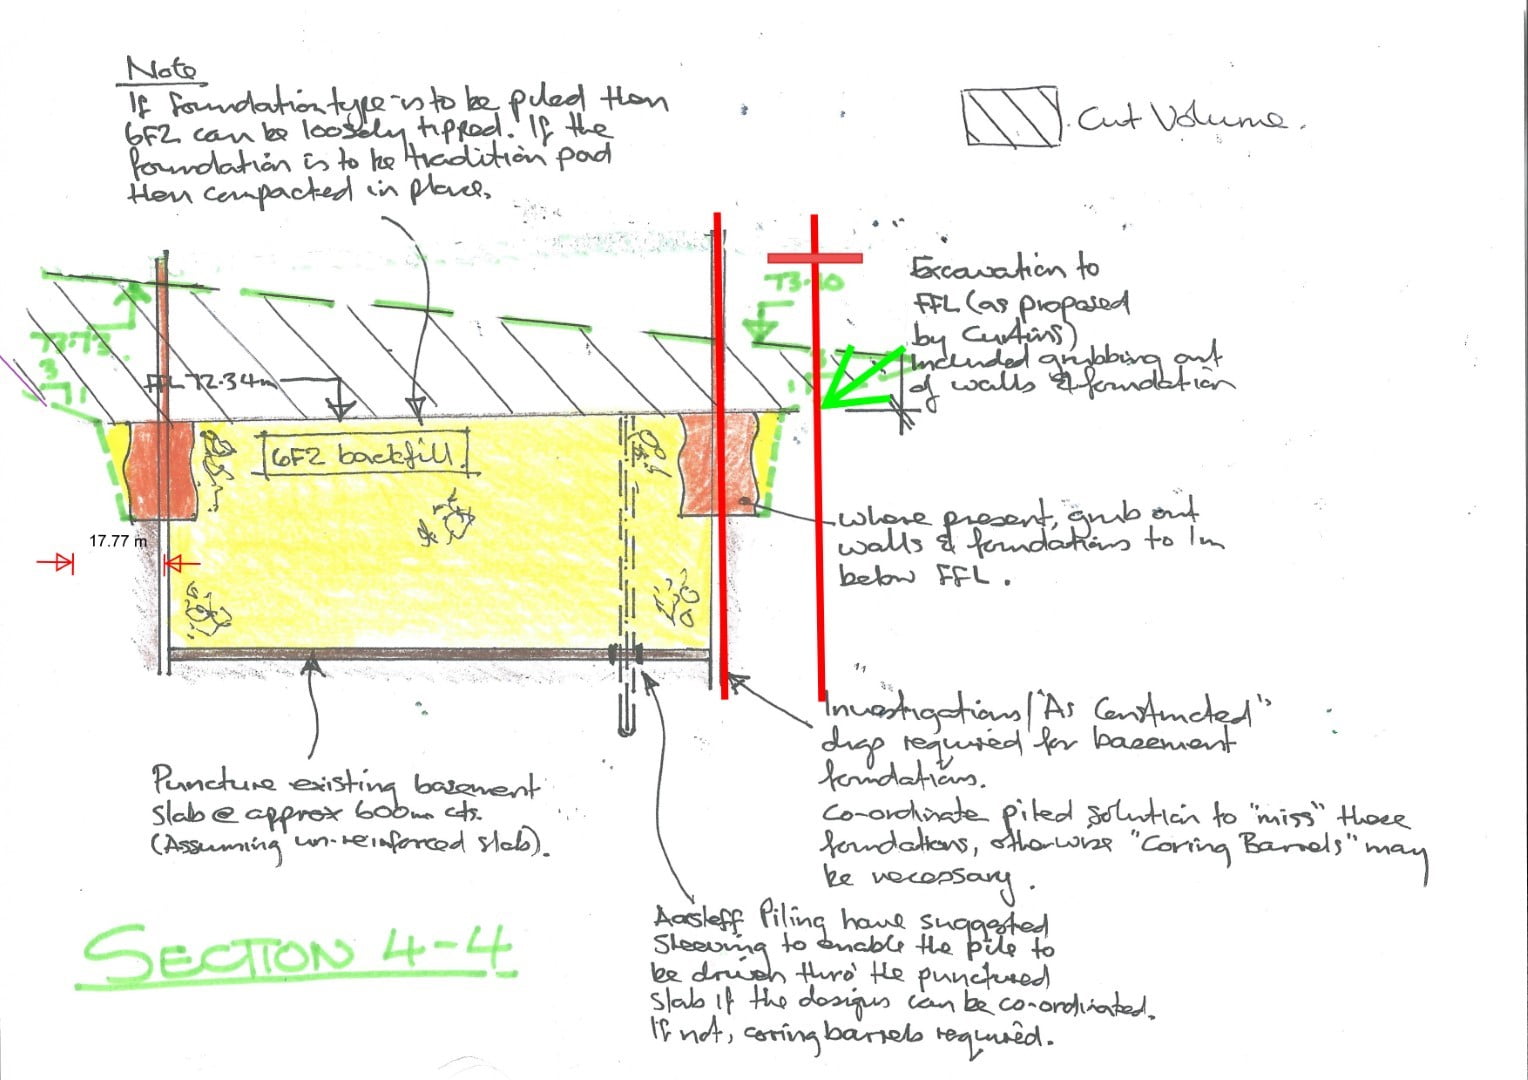 Note
If foundation type is to be piled then
6F2 can be loosely tipped. If the
foundation is to be tradition pad
then compacted in place.
Cut Volume.
73.10
Excavation to
FFL (as proposed
by Curtins)
Included grubbing out
of walls & foundation
73.73
3
1
FFL 72.34m
6F2 backfill.
17.77 m
Where present, grub out
walls & foundations to 1m
below FFL.
Investigations/"As Constructed"
drgs required for basement
foundations.
Co-ordinate piled solution to "miss" these
foundations, otherwise "Coring Barrels" may
be necessary.
Puncture existing basement
slab @ approx 600mm cts.
(Assuming un-reinforced slab).
Aarsleff Piling have suggested
sleeving to enable the pile to
be driven thro' the punctured
slab if the designs can be co-ordinated.
If not, coring barrels required.
SECTION 4-4